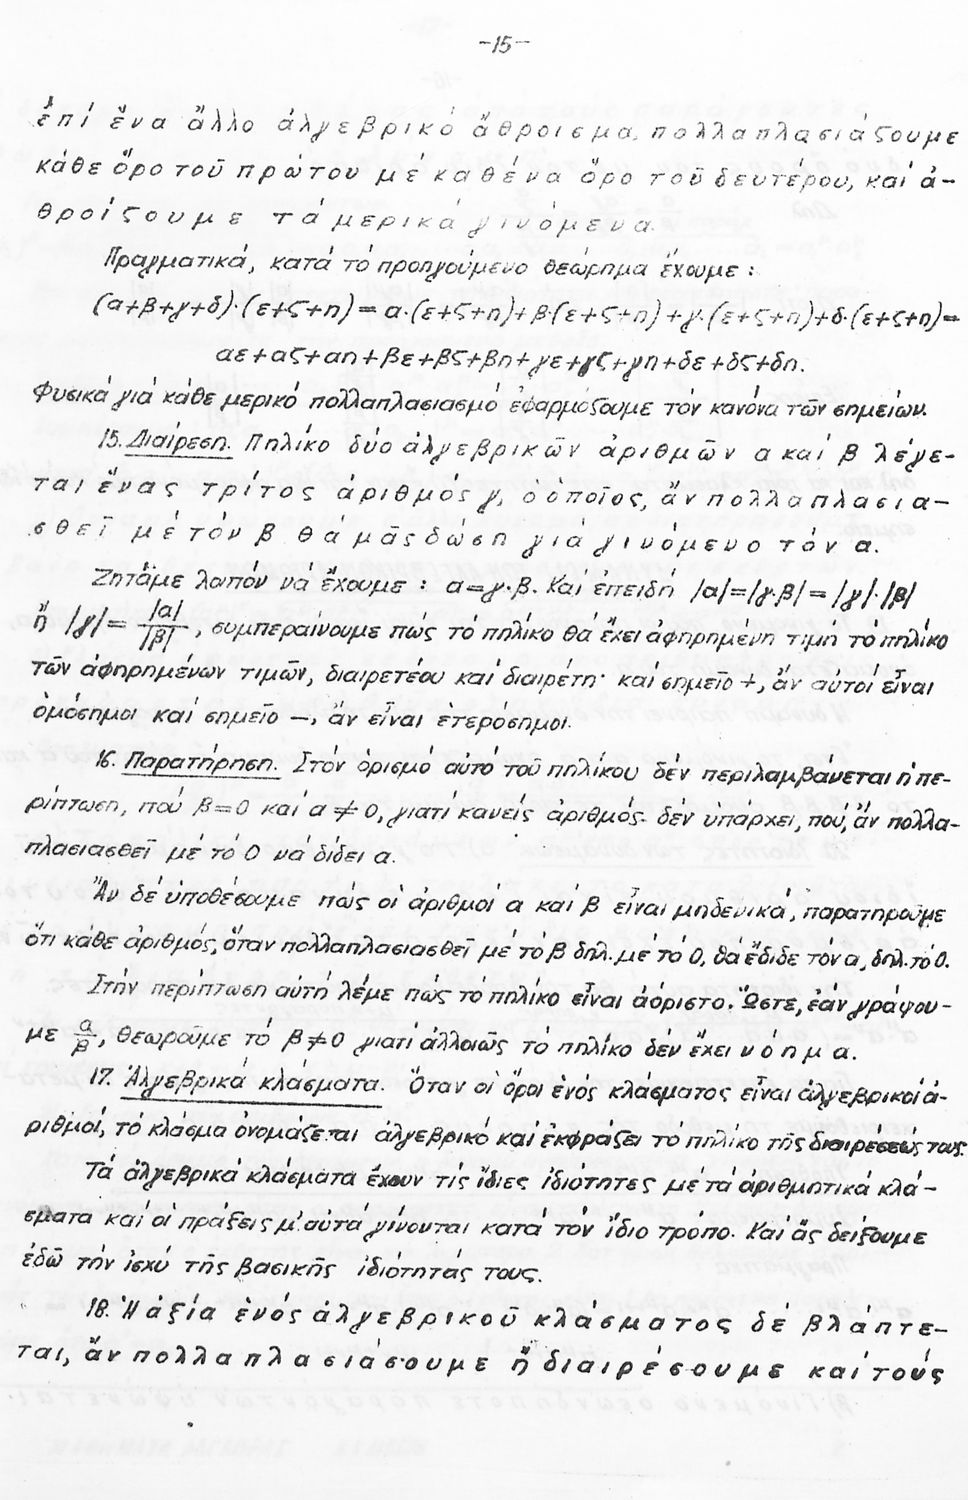 -15-
ἐπί ἕνα ἄλλο ἀλγεβρικό ἄθροισμα, πολλαπλασιάζουμε
κάθε ὅρο τοῦ πρώτου μέ καθένα ὅρο τοῦ δευτέρου, καί ἀ-
θροίζουμε τά μερικά γινόμενα.
Πραγματικά, κατά τό προηγούμενο θεώρημα ἔχουμε:
(α+β+γ+δ)·(ε+ζ+η)=α·(ε+ζ+η)+β·(ε+ζ+η)+γ·(ε+ζ+η)+δ·(ε+ζ+η)=
αε+αζ+αη+βε+βζ+βη+γε+γζ+γη+δε+δζ+δη.
Φυσικά γιά κάθε μερικό πολλαπλασιασμό ἐφαρμόζουμε τόν κανόνα τῶν σημείων.
15. Διαίρεση. Πηλίκο δύο ἀλγεβρικῶν ἀριθμῶν α καί β λέγε-
ται ἕνας τρίτος ἀριθμός γ, ὁ ὁποῖος, ἄν πολλαπλασια-
σθεῖ μέ τόν β θά μᾶς δώση γιά γινόμενο τόν α.
Ζητᾶμε λοιπόν νά ἔχουμε: α=γ·β. Καί ἐπειδή |α|=|γ·β|=|γ|·|β|
ἤ |γ|=|α|/|β|, συμπεραίνουμε πώς τό πηλίκο θά ἔχει ἀφηρημένη τιμή τό πηλίκο
τῶν ἀφηρημένων τιμῶν, διαιρετέου καί διαιρέτη· καί σημεῖο +, ἄν αὐτοί εἶναι
ὁμόσημοι καί σημεῖο –, ἄν εἶναι ἑτερόσημοι.
16. Παρατήρηση. Στόν ὁρισμό αὐτό τοῦ πηλίκου δέν περιλαμβάνεται ἡ πε-
ρίπτωση, πού β=0 καί α≠0, γιατί κανείς ἀριθμός δέν ὑπάρχει, πού, ἄν πολλα-
πλασιασθεῖ μέ τό 0 νά δίδει α.
Ἄν δέ ὑποθέσουμε πώς οἱ ἀριθμοί α καί β εἶναι μηδενικά, παρατηροῦμε
ὅτι κάθε ἀριθμός, ὅταν πολλαπλασιασθεῖ μέ τό β δηλ. μέ τό 0, θά ἔδιδε τόν α, δηλ. τό 0.
Στήν περίπτωση αὐτή λέμε πώς τό πηλίκο εἶναι ἀόριστο. Ὥστε, ἐάν γράψου-
με α/β, θεωροῦμε τό β≠0 γιατί ἀλλοιῶς τό πηλίκο δέν ἔχει νόημα.
17. Ἀλγεβρικά κλάσματα. Ὅταν οἱ ὅροι ἑνός κλάσματος εἶναι ἀλγεβρικοί ἀ-
ριθμοί, τό κλάσμα ὀνομάζεται ἀλγεβρικό καί ἐκφράζει τό πηλίκο τῆς διαιρέσεώς τους.
Τά ἀλγεβρικά κλάσματα ἔχουν τίς ἴδιες ἰδιότητες μέ τά ἀριθμητικά κλά-
σματα καί οἱ πράξεις μ' αὐτά γίνονται κατά τόν ἴδιο τρόπο. Καί ἄς δείξουμε
ἐδῶ τήν ἰσχύ τῆς βασικῆς ἰδιότητάς τους.
18. Ἡ ἀξία ἑνός ἀλγεβρικοῦ κλάσματος δέ βλάπτε-
ται, ἄν πολλαπλασιάσουμε ἤ διαιρέσουμε καί τούς